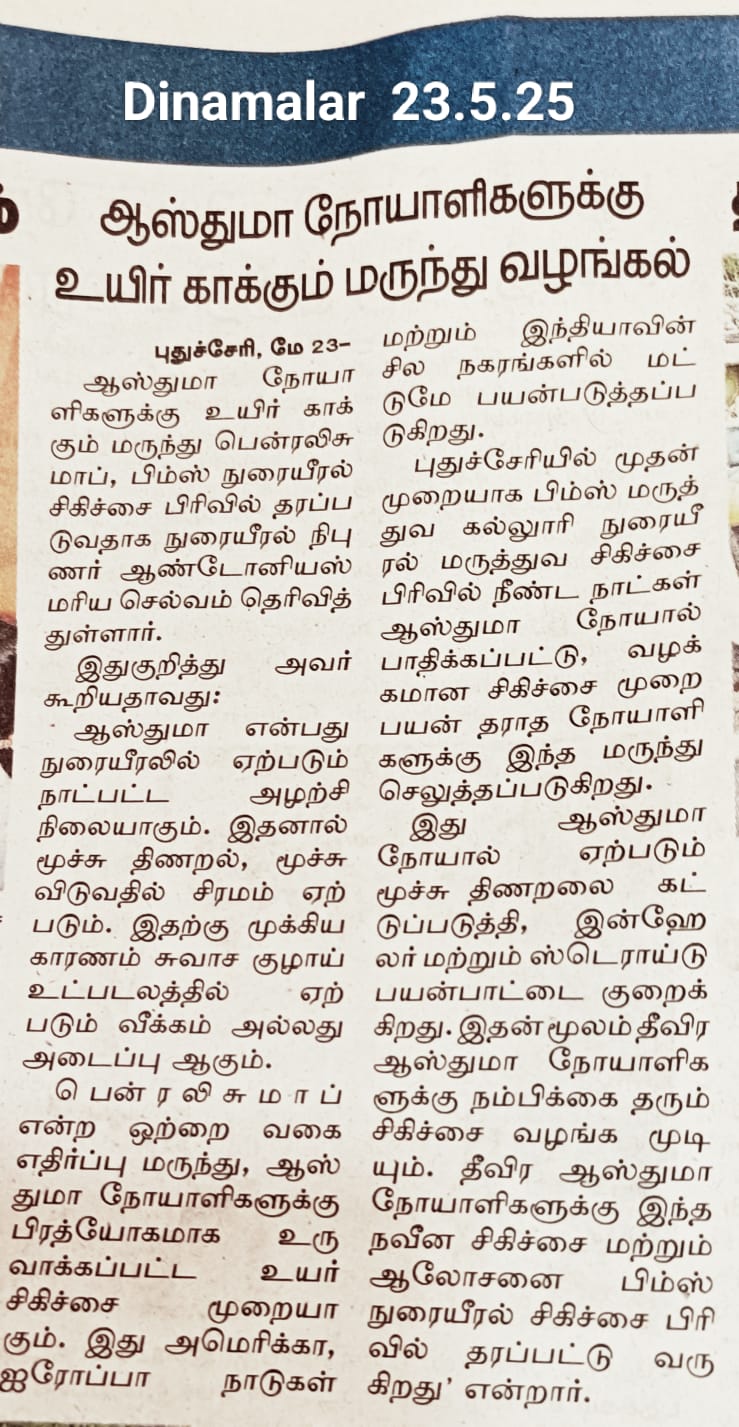 Dinamalar 23.5.25
ஆஸ்துமா நோயாளிகளுக்கு
உயிர் காக்கும் மருந்து வழங்கல்
புதுச்சேரி, மே 23–
ஆஸ்துமா நோயா
ளிகளுக்கு உயிர் காக்
கும் மருந்து பென்ரலிசு
மாப், பிம்ஸ் நுரையீரல்
சிகிச்சை பிரிவில் தரப்ப
டுவதாக நுரையீரல் நிபு
ணர் ஆண்டோனியஸ்
மரிய செல்வம் தெரிவித்
துள்ளார்.
இதுகுறித்து அவர்
கூறியதாவது:
ஆஸ்துமா என்பது
நுரையீரலில் ஏற்படும்
நாட்பட்ட அழற்சி
நிலையாகும். இதனால்
மூச்சு திணறல், மூச்சு
விடுவதில் சிரமம் ஏற்
படும். இதற்கு முக்கிய
காரணம் சுவாச குழாய்
உட்படலத்தில் ஏற்
படும் வீக்கம் அல்லது
அடைப்பு ஆகும்.
பென்ரலிசுமாப்
என்ற ஒற்றை வகை
எதிர்ப்பு மருந்து, ஆஸ்
துமா நோயாளிகளுக்கு
பிரத்யோகமாக உரு
வாக்கப்பட்ட உயர்
சிகிச்சை முறையா
கும். இது அமெரிக்கா,
ஐரோப்பா நாடுகள்
மற்றும் இந்தியாவின்
சில நகரங்களில் மட்
டுமே பயன்படுத்தப்ப
டுகிறது.
புதுச்சேரியில் முதன்
முறையாக பிம்ஸ் மருத்
துவ கல்லுாரி நுரையீ
ரல் மருத்துவ சிகிச்சை
பிரிவில் நீண்ட நாட்கள்
ஆஸ்துமா நோயால்
பாதிக்கப்பட்டு, வழக்
கமான சிகிச்சை முறை
பயன் தராத நோயாளி
களுக்கு இந்த மருந்து
செலுத்தப்படுகிறது.
இது ஆஸ்துமா
நோயால் ஏற்படும்
மூச்சு திணறலை கட்
டுப்படுத்தி, இன்ஹே
லர் மற்றும் ஸ்டெராய்டு
பயன்பாட்டை குறைக்
கிறது. இதன் மூலம் தீவிர
ஆஸ்துமா நோயாளிக
ளுக்கு நம்பிக்கை தரும்
சிகிச்சை வழங்க முடி
யும். தீவிர ஆஸ்துமா
நோயாளிகளுக்கு இந்த
நவீன சிகிச்சை மற்றும்
ஆலோசனை பிம்ஸ்
நுரையீரல் சிகிச்சை பிரி
வில் தரப்பட்டு வரு
கிறது' என்றார்.